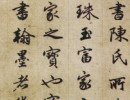 書陳氏所
珠玉富家
家之寶也
書翰墨者